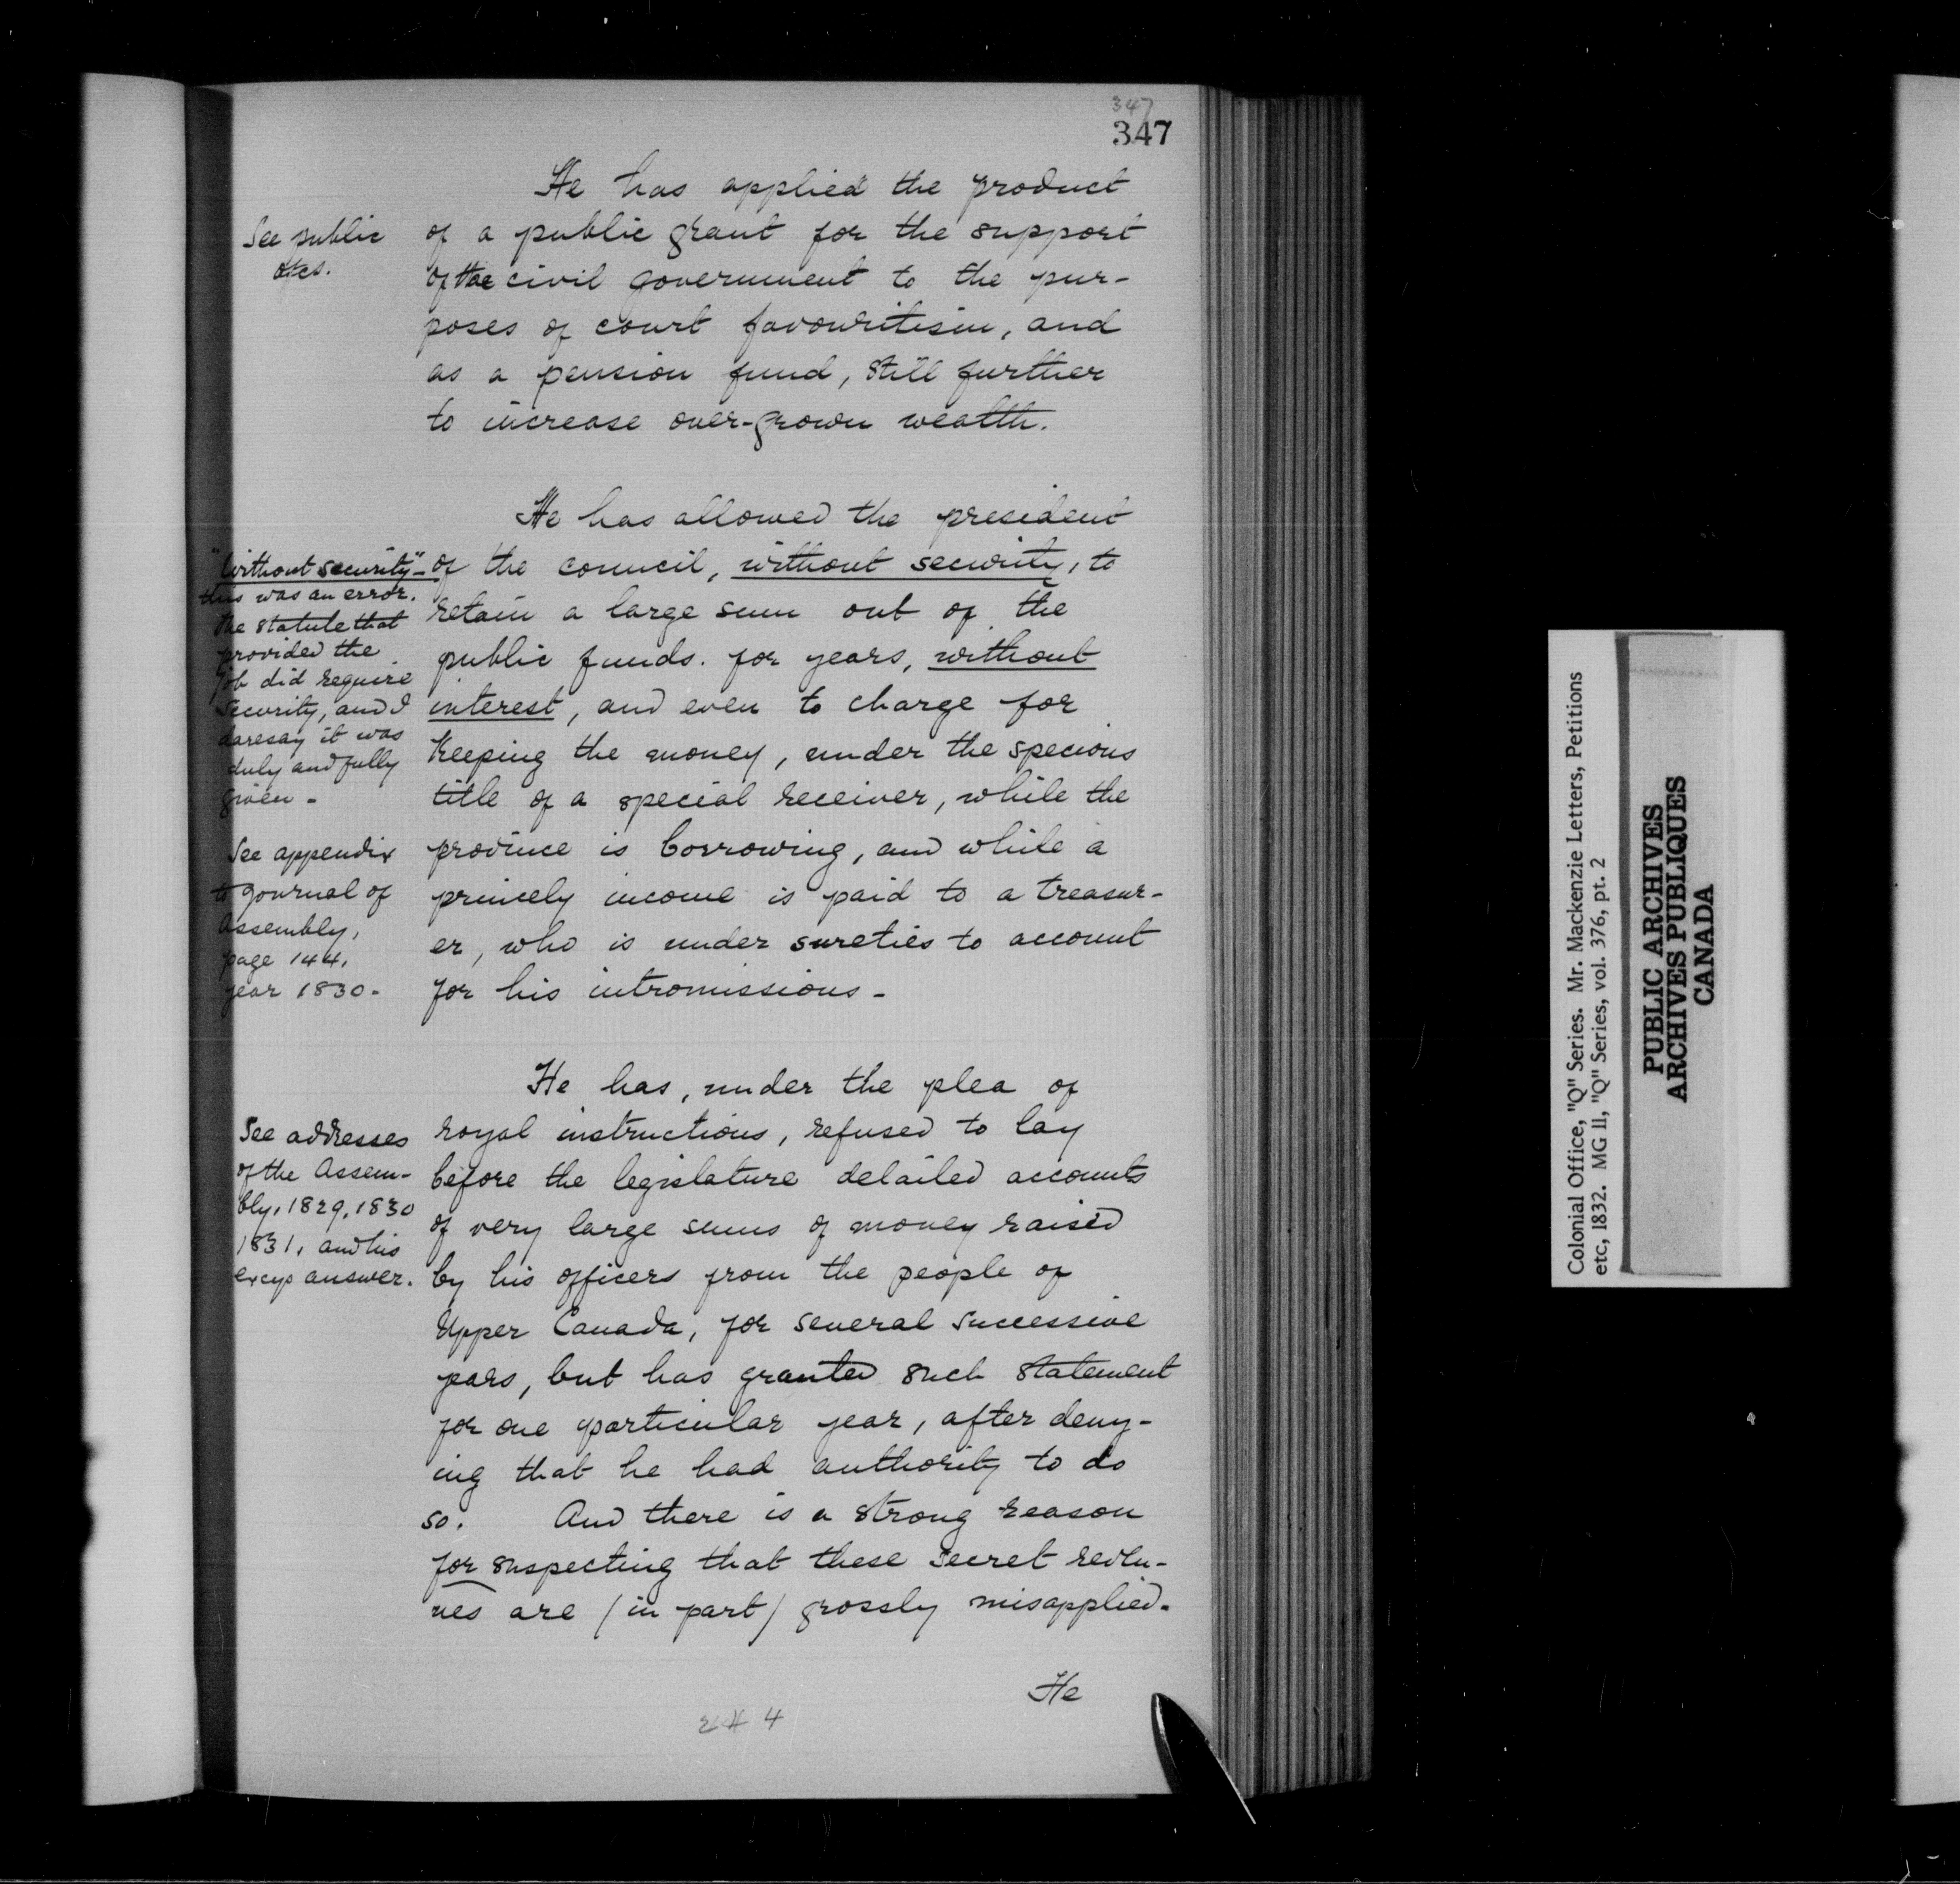 347
347
He has applied the product
See public
of a public grant for the support
of the civil government to the pur-
poses of court favouritism, and
as a pension fund, still further
to increase over-grown wealth.
He has allowed the president
of the council, without security, to
retain a large sum out of the
public funds. for years, without
interest, and even to charge for
keeping the money, under the specious
title of a special receiver, while the
province is borrowing, and while a
princely income is paid to a treasur-
er, who is under sureties to account
for his intromissions -
"Without security" -
this was an error.
The statute that
provided the
job did require
security, and I
daresay it was
duly and fully
given -
See appendix
to journal of
Assembly,
page 144,
year 1830 -
He has, under the plea of
royal instructions, refused to lay
before the legislature detailed accounts
of very large sums of money raised
by his officers from the people of
Upper Canada, for several successive
years, but has granted such statement
for one particular year, after deny-
ing that he had authority to do
so. And there is a strong reason
for suspecting that these secret reven-
ues are (in part) grossly misapplied.
See addresses
of the Assem-
bly, 1829, 1830
1831, and his
excys answer.
He
4
Colonial Office, "Q" Series. Mr. Mackenzie Letters, Petitions
etc, 1832. MG 11, "Q" Series, vol. 376, pt. 2
PUBLIC ARCHIVES
ARCHIVES PUBLIQUES
CANADA